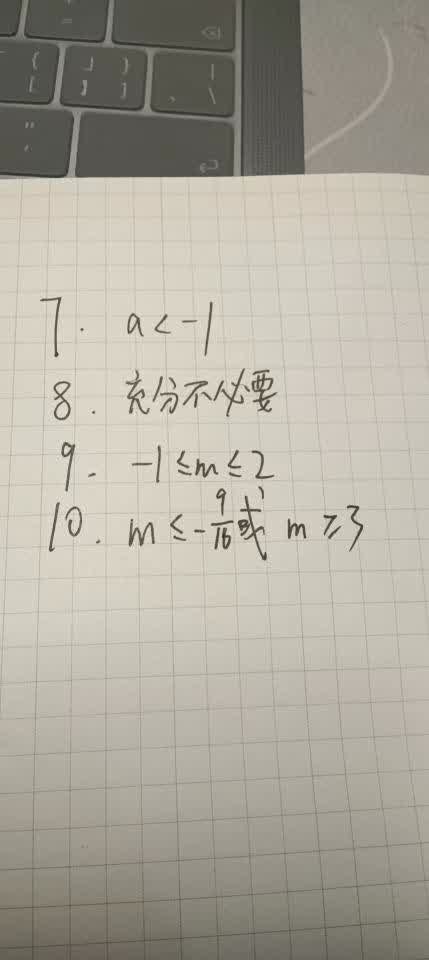 7. a < -1
8. 充分不必要
9. -1 ≤ m ≤ 2
10. m ≤ -9/16 或 m ≥ 3